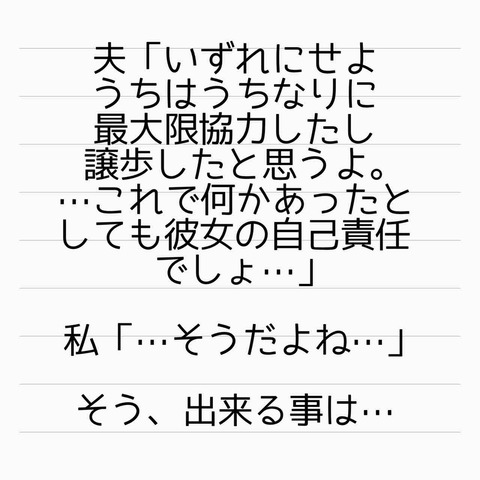 夫「いずれにせよ
うちはうちなりに
最大限協力したし
譲歩したと思うよ。
…これで何かあったと
しても彼女の自己責任
でしょ…」
私「…そうだよね…」
そう、出来る事は…